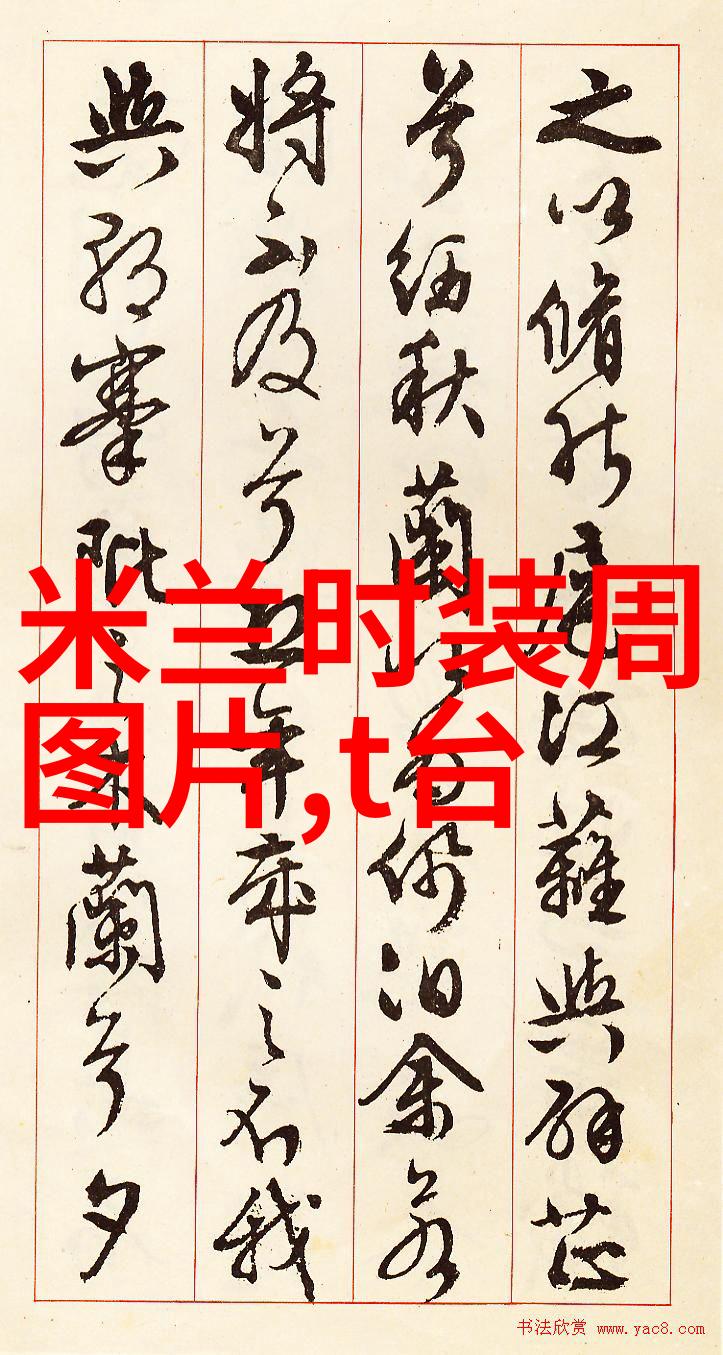 之以脩能扈江蘺與辟芷
兮紉秋蘭以為佩汩余若
將不及兮恐年歲之不我
與朝搴阰之木蘭兮夕
米兰时装周
图片,t台
书法欣赏 www.yac8.com